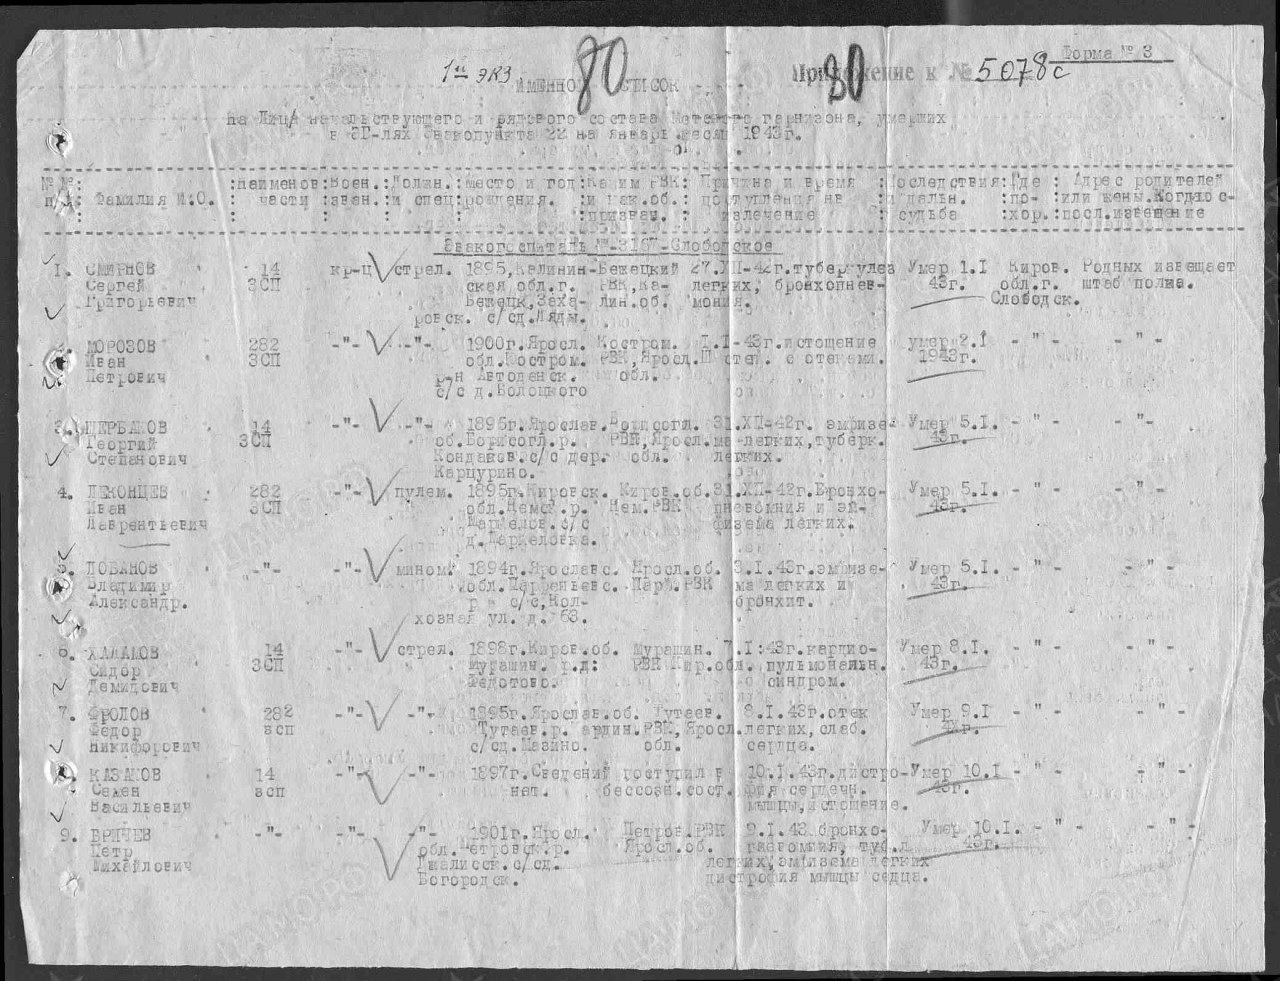 Форма № 3
1й экз 80 80 Приложение к № 5078с
ИМЕННОЙ СПИСОК
на Лиц начальствующего и рядового состава гарнизона, умерших
в ЭГ-лях Эвакопункта 22 на январь месяц 1943г.
№№ :наименов:Воен.:Должн.:Место и год:Каким РВК: Причина и время :Последствия:Где : Адрес родителей
п/п Фамилия И.О. : части :зван.:и спец:рождения. :и как.об.: поступления на :и дальн. :по- :или жены.Когда о-
:призван. : излечение :судьба :хор.:посл.извещение
Эвакогоспиталь №-3167-Слободское
1. СМИРНОВ 14 кр-ц стрел. 1895,Калинин-Бежецкий 27.XП-42г.туберкулез Умер 1.I Киров. Родных извещает
Сергей ЗСП ская обл.г. РВК,Ка- легких, бронхопнев- 43г. обл.г. штаб полка.
Григорьевич Бежецк,Заха- лин.об. мония. Слободск.
ровск. с/сд.Ляды.
2. МОРОЗОВ 282 -"- -"- 1900г.Яросл. Костром. I.I-43г.истощение умер 2.I - " - - " -
Иван ЗСП обл.Костром. РВК,Яросл.П степ. с отеками. 1943г.
Петрович р-н обл.
с/с д.Болоцкого
3. ЩЕРБАКОВ 14 -"- -"- 1896г.Ярослав.Борисогл. 31.XП-42г. эмфизе- Умер 5.I. - " - - "-
Георгий ЗСП об.Борисогл.р. РВК,Яросл.ма легких,туберк. 43г.
Степанович Кондаков.с/с дер. обл. легких.
Карцурино.
4. ЛЕКОНЦЕВ 282 -"- пулем. 1895г.Кировск. Киров.об.31.XП-42г.Бронхо- Умер 5.I. - " - - " -
Иван ЗСП обл.Немск.р. Нем.РВК пневмония и эм- 43г.
Лаврентьевич Маркелов.с/с физема легких.
д.Маркеловка.
5. ЛОБАНОВ -"- -"- мином. 1894г.Ярославс. Яросл.об. 3.I.43г.эмфизе- Умер 5.I. - " - - " -
Владимир обл.Парфеньевс. Парф.РВК ма легких и 43г.
Александр. р с/с,Кол- бронхит.
хозная ул. д. 63.
6. ХАЛАМОВ 14 -"- стрел. 1898г.Киров.об. Мурашин. 7.I.43г.кардио- Умер 8.I. - " - - " -
Сидор ЗСП Мурашин. р.д: РВК Кир.обл. пульмональн. 43г.
Демидович Федотово. синдром.
7. ФРОЛОВ 282 -"- -"- 1895г.Ярослав.об. Тутаев. 8.I.43г.отек Умер 9.I - " - - " -
Федор зсп Тутаев.р. РВК,Яросл.легких,слаб. 43г.
Никифорович с/сд.Мазино. обл. сердца.
8. КАЗАКОВ 14 -"- -"- 1897г.Сведений поступил в 10.I.43г.дистро- Умер 10.I - " - - " -
Семен зсп нет. бессозн.сост. фия сердечн. 43г.
Васильевич мышцы,истощение.
9. БРИЧЕВ -"- -"- -"- 1901г.Яросл. Петров.РВК 9.I.43.бронхо- Умер 10.I. - " - - " -
Петр обл.Петровск.р. Яросл.об. пневмония, туб.л 43г.
Михайлович с/сд. легких,эмфизема легких
Богородск. дистрофия мышцы седца.